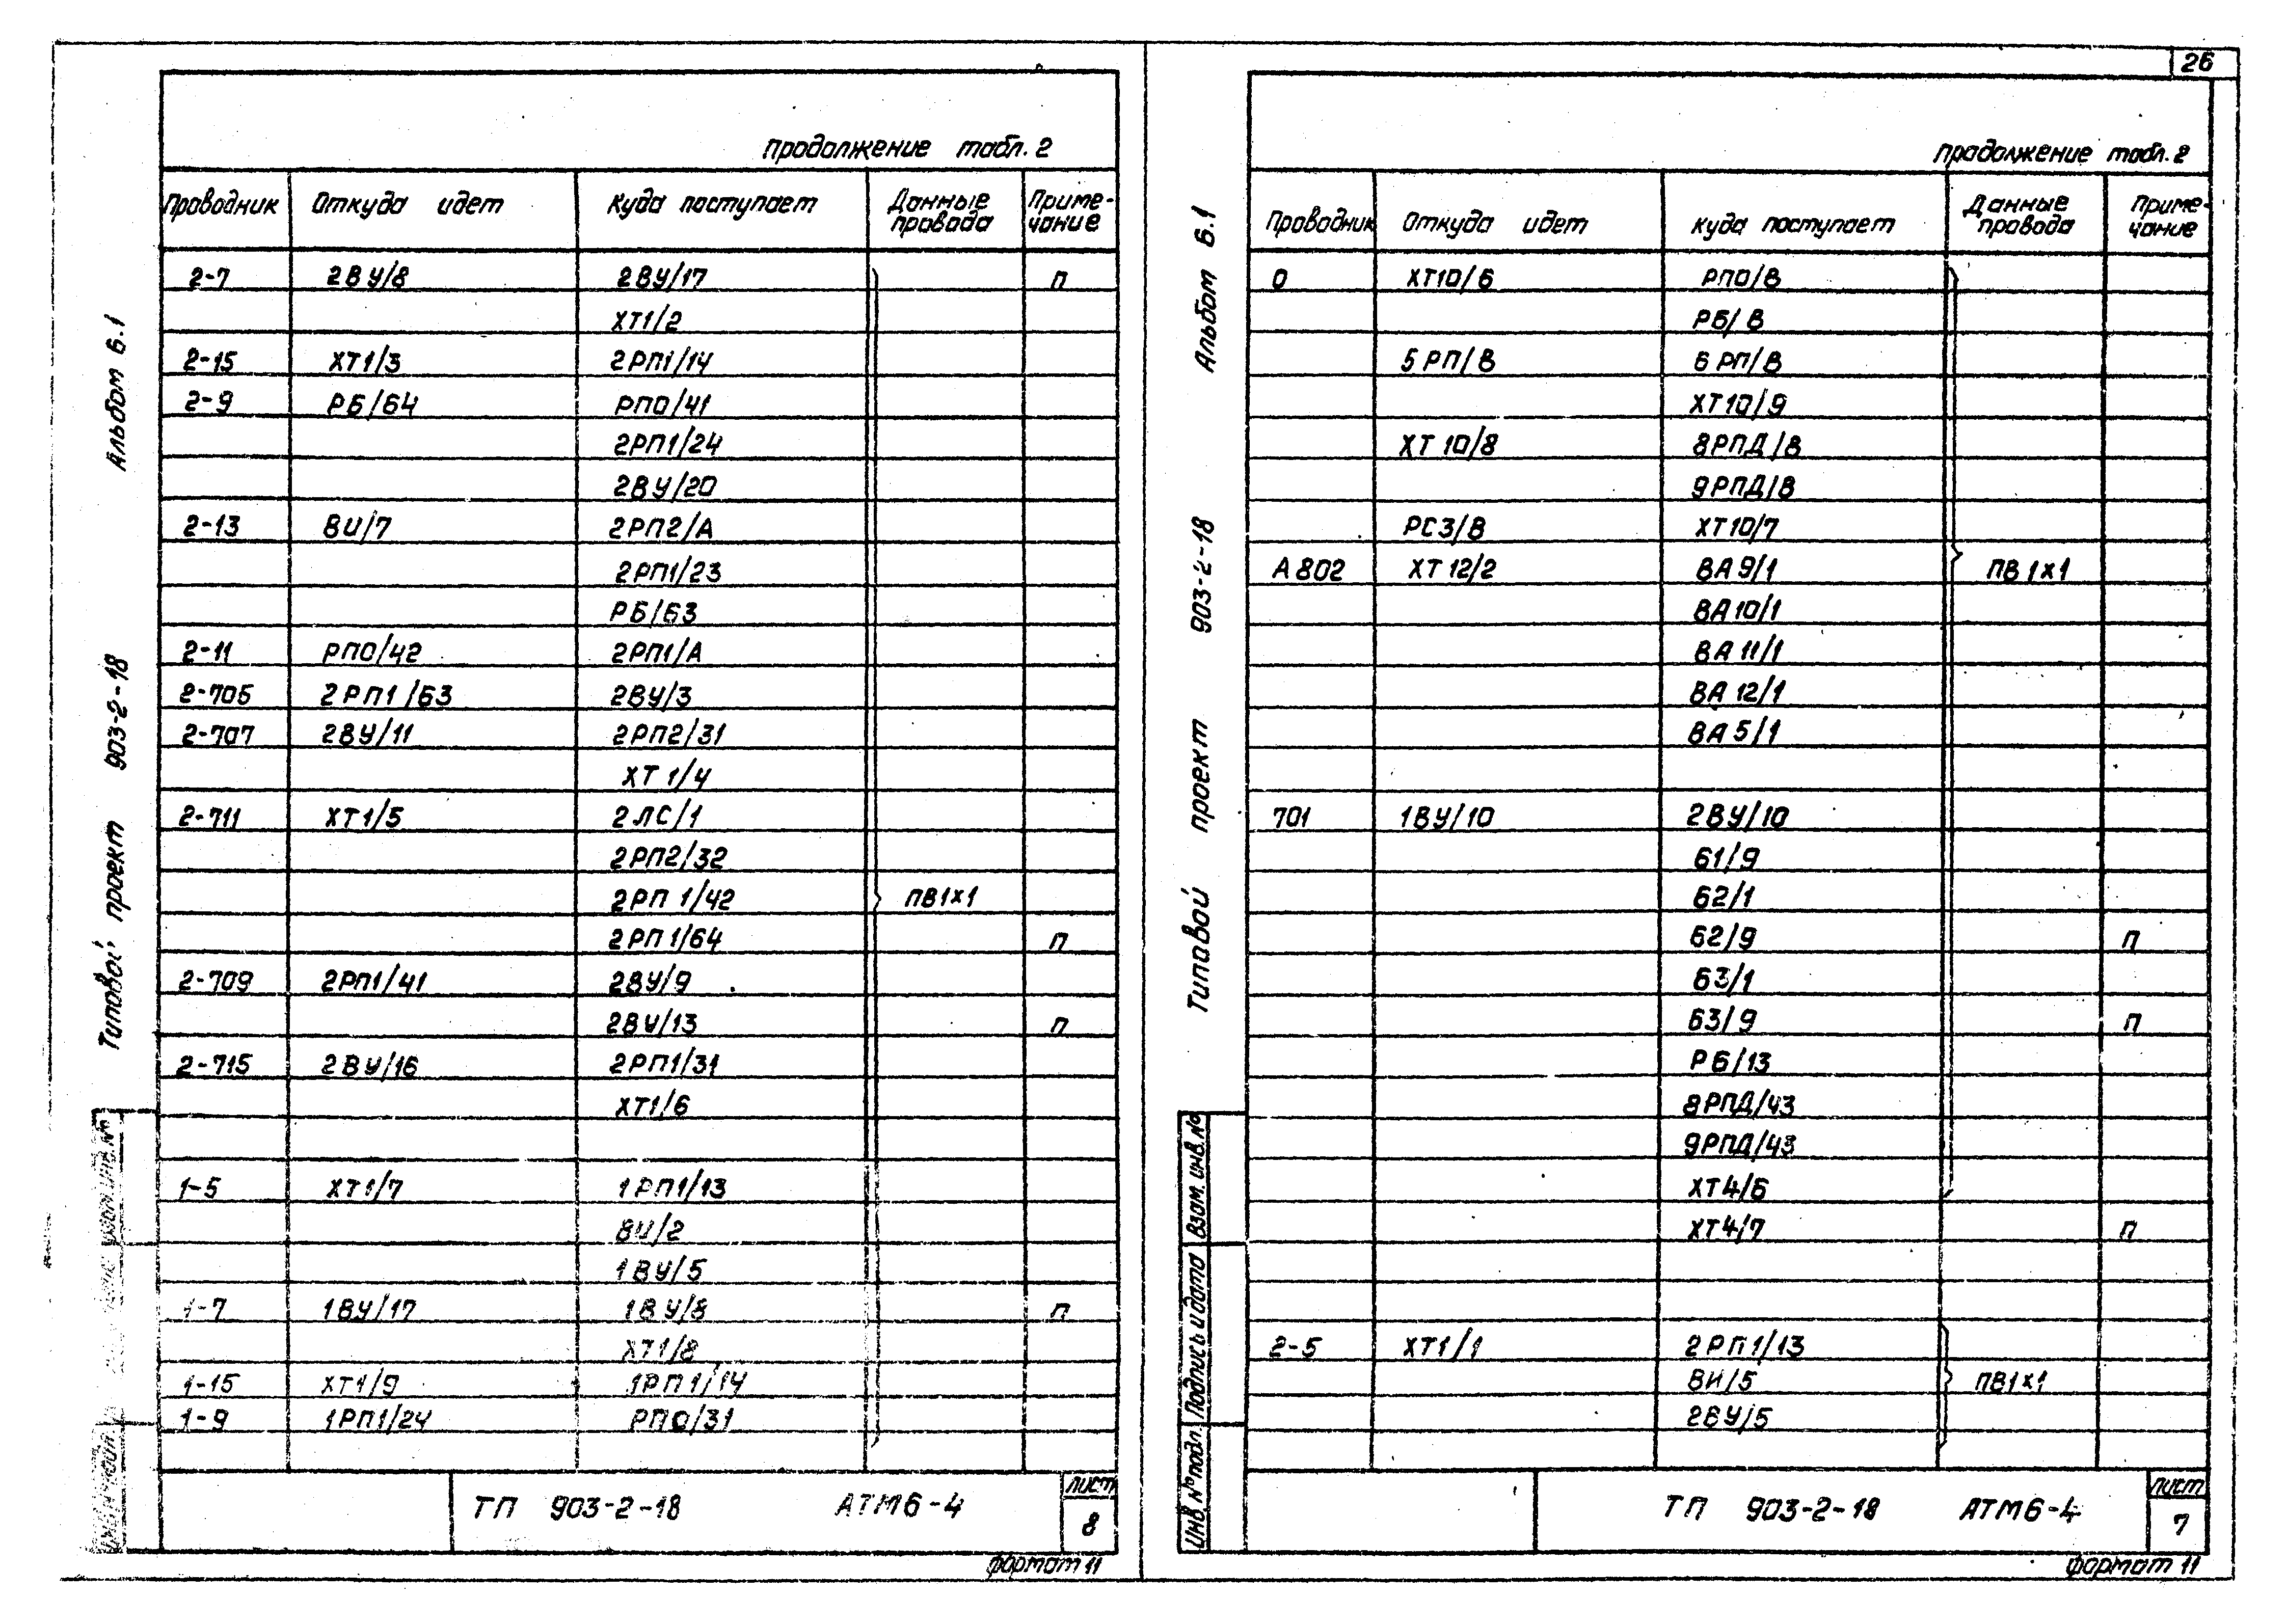 26
Продолжение табл. 2
Проводник Откуда идет Куда поступает Данные провода Приме-чание
2-7 2ВУ/8 2ВУ/17 П
ХТ1/2
2-15 ХТ1/3 2РП1/14
2-9 РБ/64 РПО/41
2РП1/24
2ВУ/20
2-13 ВИ/7 2РП2/А
2РП1/23
РБ/63
2-11 РПО/42 2РП1/А
2-705 2РП1/63 2ВУ/3
2-707 2ВУ/11 2РП2/31
ХТ1/4
2-711 ХТ1/5 2ЛС/1
2РП2/32
2РП1/42 ПВ1х1
2РП1/64 П
2-709 2РП1/41 2ВУ/9
2ВУ/13 П
2-715 2ВУ/16 2РП1/31
ХТ1/6
1-5 ХТ1/7 1РП1/13
ВИ/2
1ВУ/5
1-7 1ВУ/17 1ВУ/8 П
ХТ1/8
1-15 ХТ1/9 1РП1/14
1-9 1РП1/24 РПО/31
ТП 903-2-18 АТМ6-4
Лист
8
Формат 11
Альбом 6.1
Типовой проект 903-2-18
Продолжение табл. 2
Проводник Откуда идет Куда поступает Данные провода Приме-чание
0 ХТ10/6 РПО/В
РБ/В
5РП/В 6РП/В
ХТ10/9
ХТ10/8 8РПД/В
9РПД/В
РС3/В ХТ10/7
А802 ХТ12/2 ВА9/1 ПВ1х1
ВА10/1
ВА11/1
ВА12/1
ВА5/1
701 1ВУ/10 2ВУ/10
Б1/9
Б2/1
Б2/9 П
Б3/1
Б3/9 П
РБ/13
8РПД/43
9РПД/43
ХТ4/6
ХТ4/7 П
2-5 ХТ1/1 2РП1/13
ВИ/5 ПВ1х1
2ВУ/5
ТП 903-2-18 АТМ6-4
Лист
7
Формат 11
Альбом 6.1
Типовой проект 903-2-18
Инв. № подл. Подпись и дата Взам. инв. №